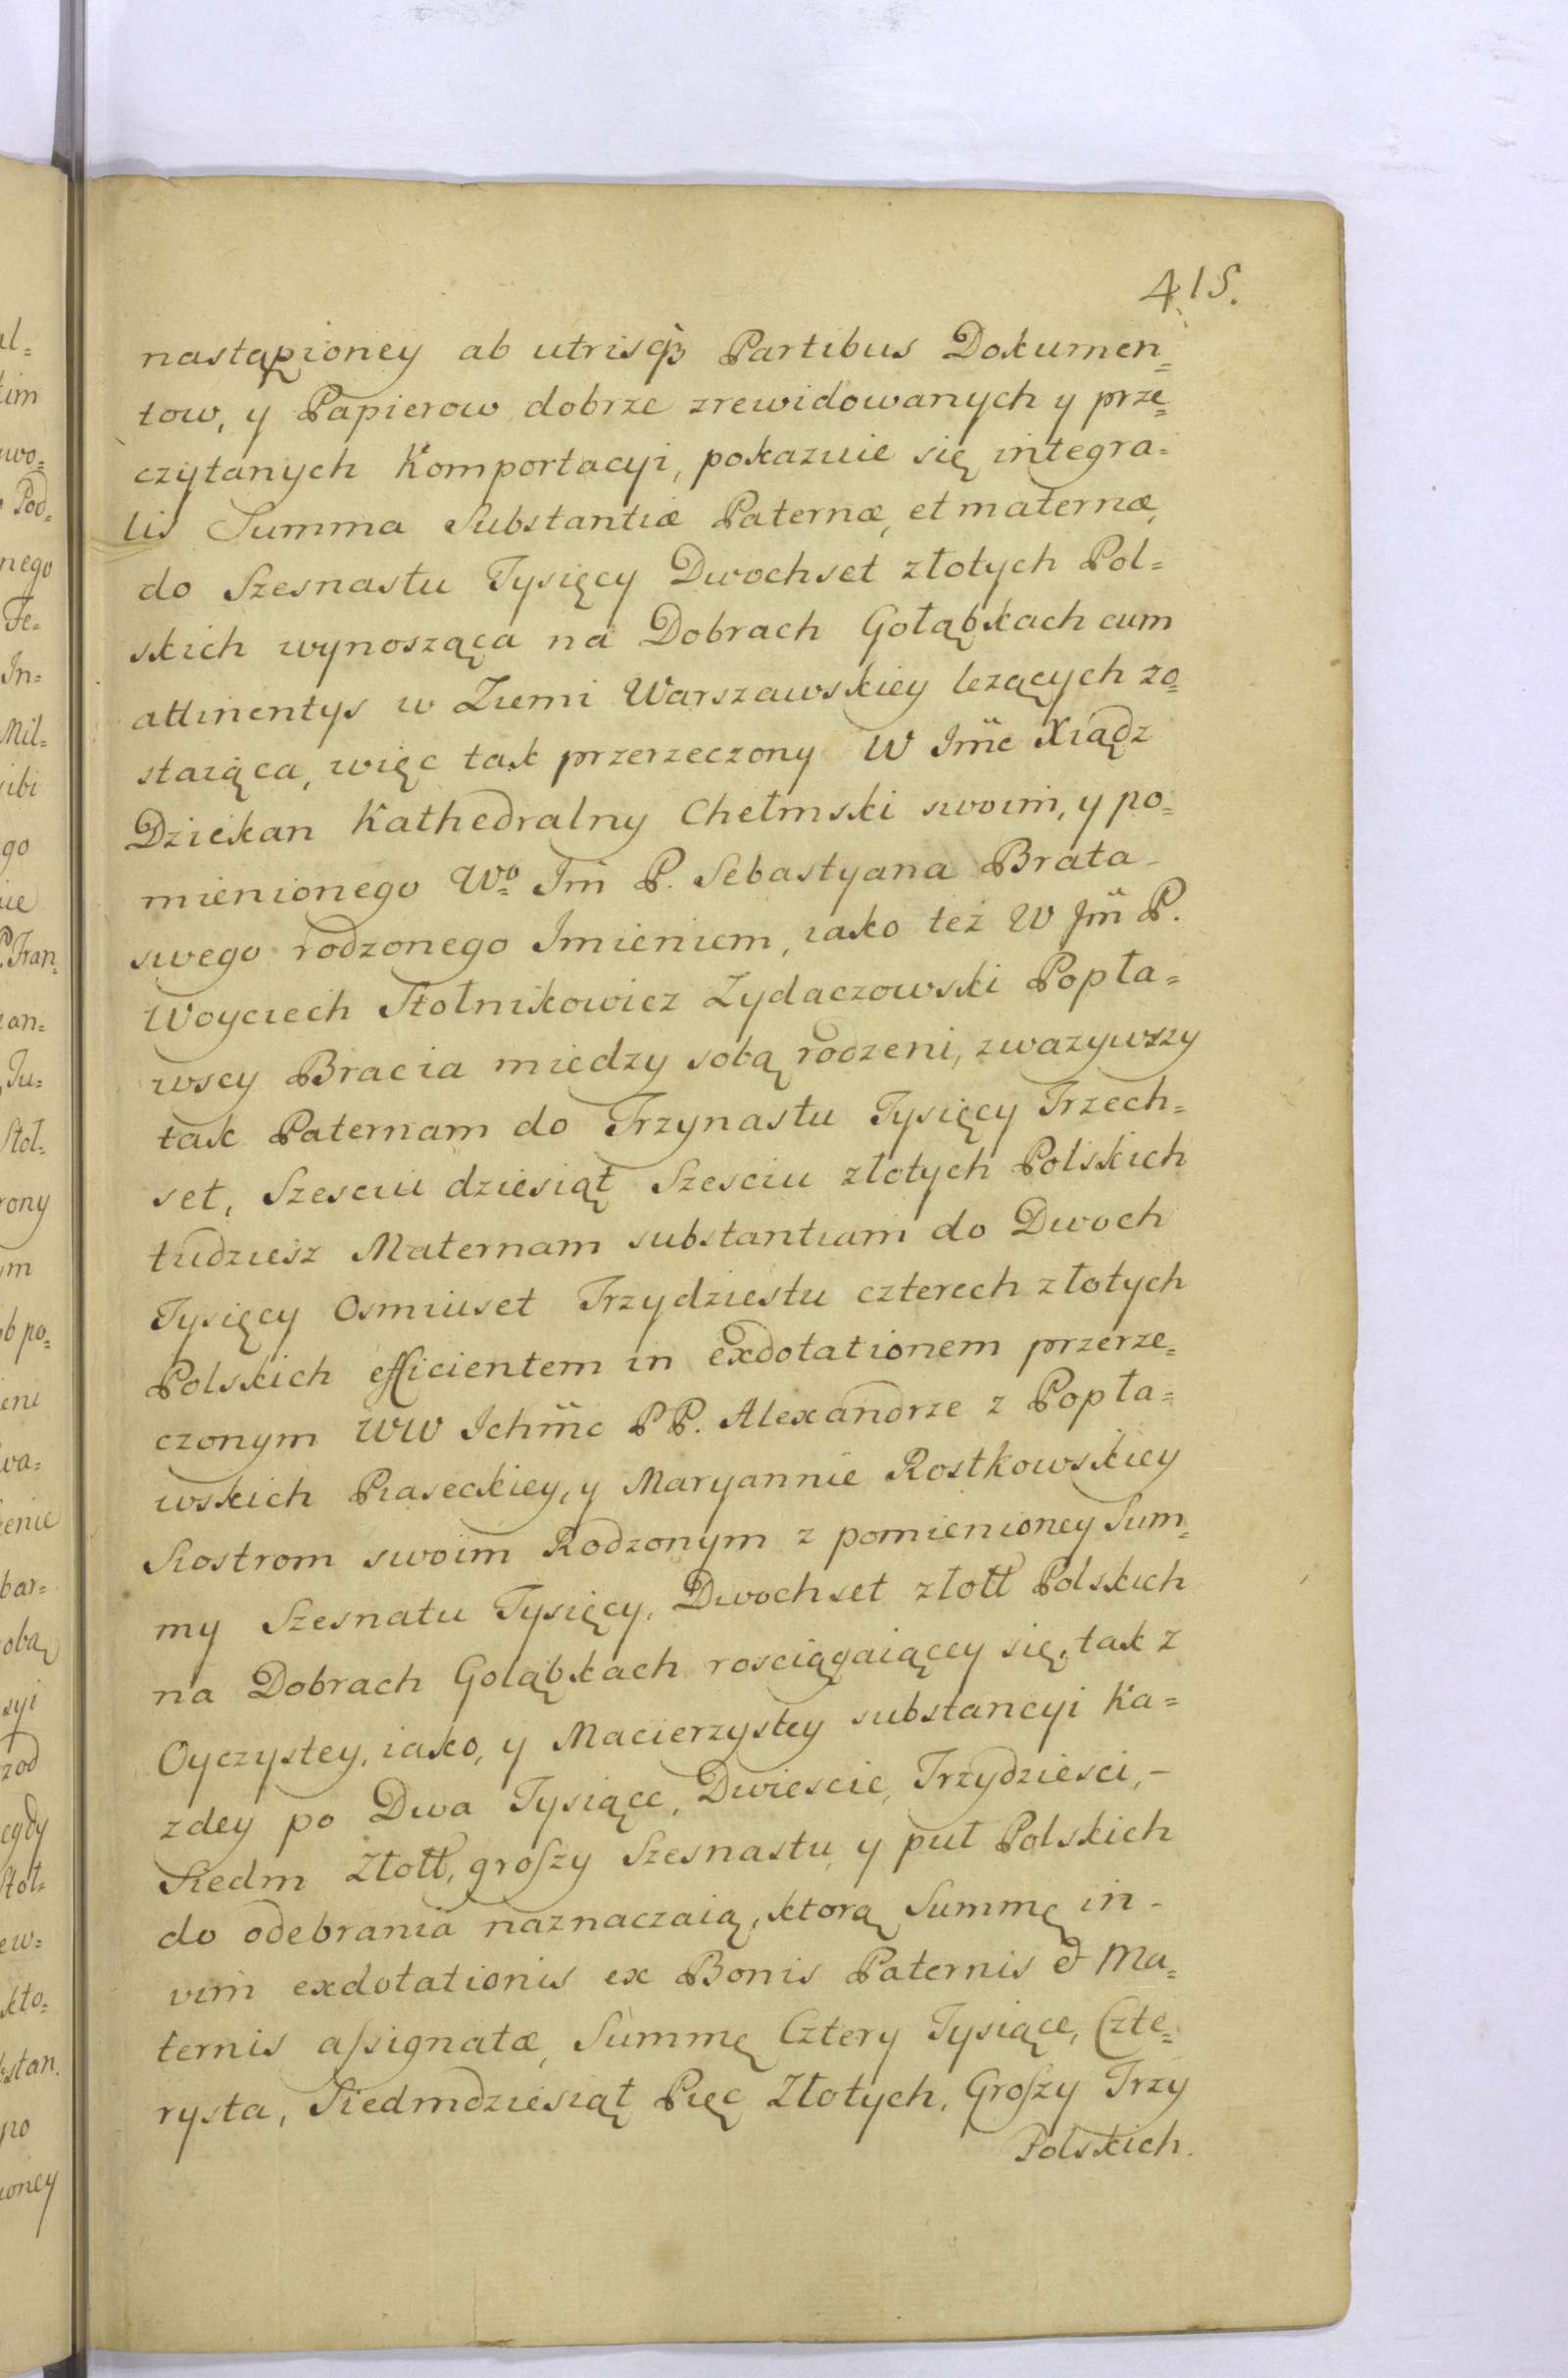 415.
nastąpioney ab utrisqȝ Partibus Dokumen=
tow, y Papierow dobrze zrewidowanych y prze=
czytanych Komportacyi, pokazuie się integra=
lis Summa Substantiæ Paternæ, et maternæ,
do Szesnastu Tysięcy Dwochset złotych Pol=
skich wynosząca na Dobrach Gołąbkach cum
attinentys w Ziemi Warszawskiey lezących zo=
staiąca, więc tak przerzeczony W Jmc Xiądz
Dziekan Kathedralny Chełmski swoim, y po=
mienionego Wo Jm P. Sebastyana Brata
swego rodzonego Imieniem, iako też W Jm P.
Woyciech Stolnikowicz Zydaczowski Popła=
wscy Bracia miedzy sobą rodzeni, zwazywszy
tak Paternam do Trzynastu Tysięcy Trzech=
set, Szesciu dziesiąt Szesciu złotych Polskich
tudziesz Maternam substantiam do Dwoch
Tysięcy Osmiuset Trzydziestu czterech złotych
Polskich efficientem in exdotationem przerze=
czonym WW Ichmc PP. Alexandrze z Popła=
wskich Piaseckiey, y Maryannie Rostkowskiey
Siostrom swoim Rodzonym z pomienioney Sum=
my Szesnatu Tysięcy, Dwochset złott Polskich
na Dobrach Goląbkach rosciągaiącey się, tak z
Oyczystey, iako, y Macierzystey substancyi Ka=
zdey po Dwa Tysiące, Dwiescie, Trzydziesci, –
Siedm Złott, groszy Szesnastu y puł Polskich
do odebrania naznaczaią, ktorą Summę in-
vim exdotationis ex Bonis Paternis & Ma=
ternis assignatæ, Summę Cztery Tysiące, Czte=
rysta, Siedmdziesiąt Pięc Złotych, Groszy Trzy
Polskich.